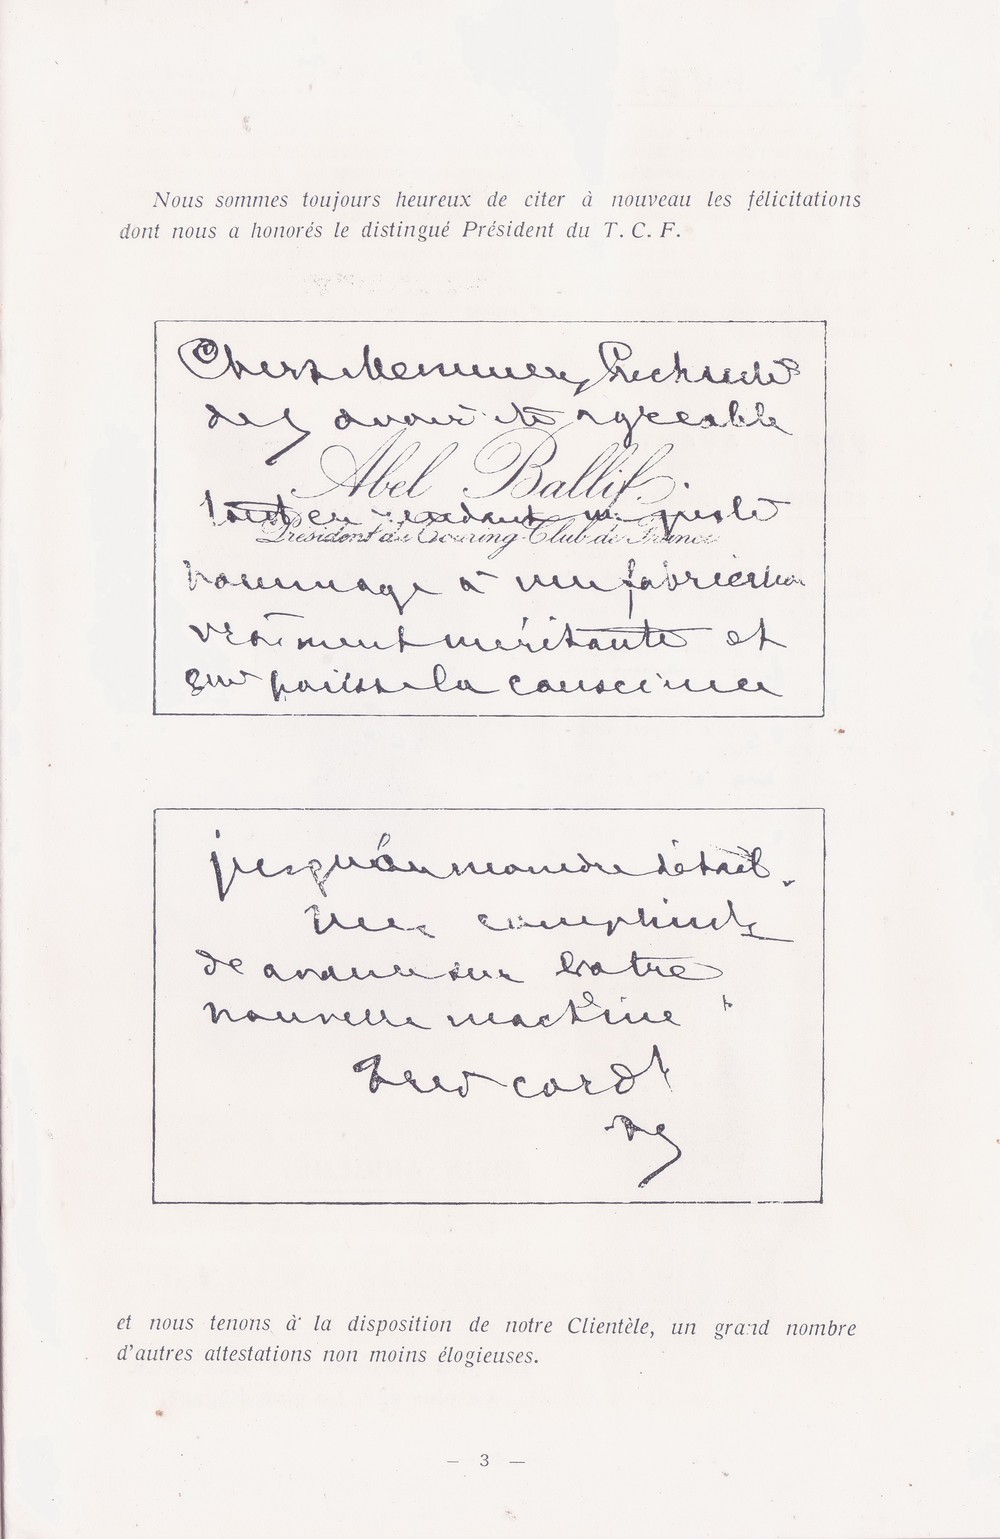 Nous sommes toujours heureux de citer à nouveau les félicitations
dont nous a honorés le distingué Président du T. C. F.
Chers Messieurs,
d'y avoir été agréable
Abel Ballif
tout en rendant un juste
Président du Touring-Club de France
hommage à une fabrication
vraiment méritante et
qui pousse la conscience
jusqu'au moindre détail.
Mes compliments
d'avance sur votre
nouvelle machine
Très cord^t
et nous tenons à la disposition de notre Clientèle, un grand nombre
d'autres attestations non moins élogieuses.
— 3 —